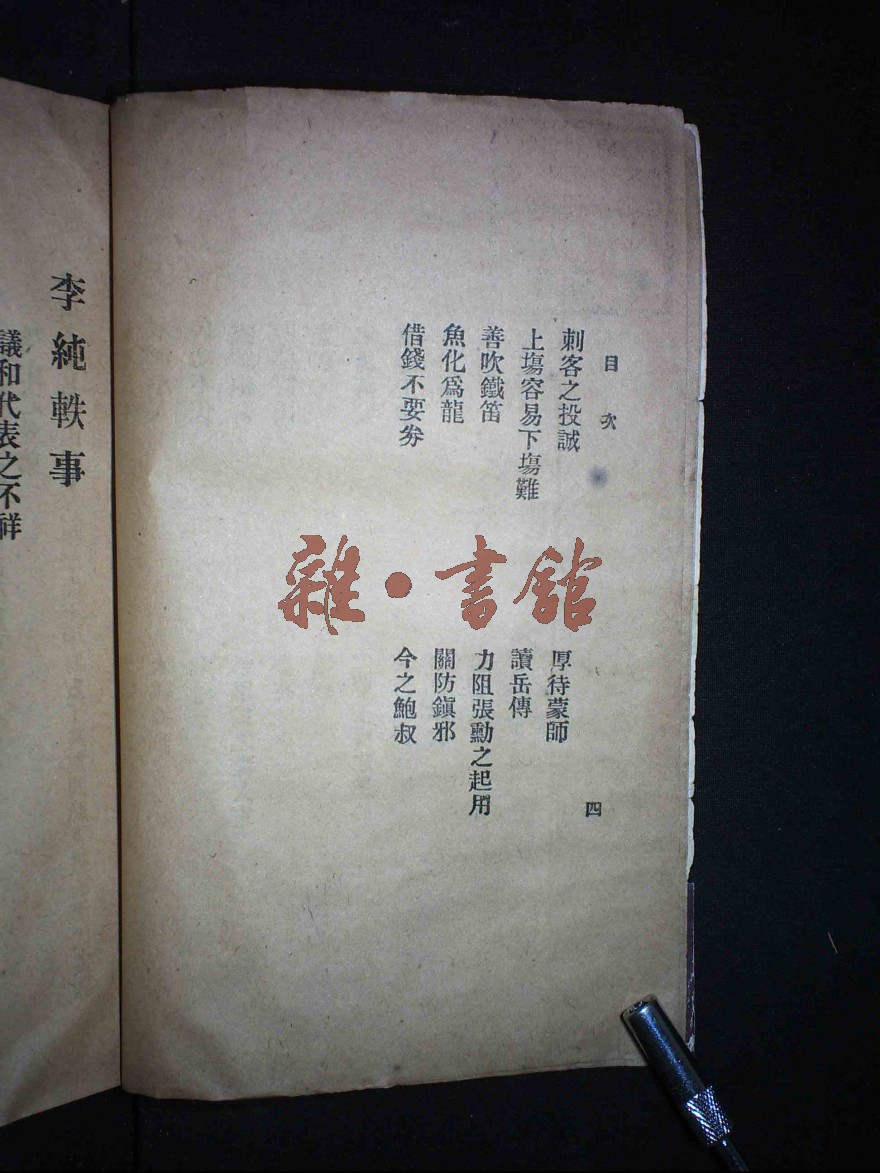 目次
四
刺客之投誠
厚待蒙師
上塲容易下塲難
讀岳傳
善吹鐵笛
力阻張勳之起用
魚化爲龍
關防鎭邪
借錢不要劵
今之鮑叔
雜·書館
李純軼事
議和代表之不祥